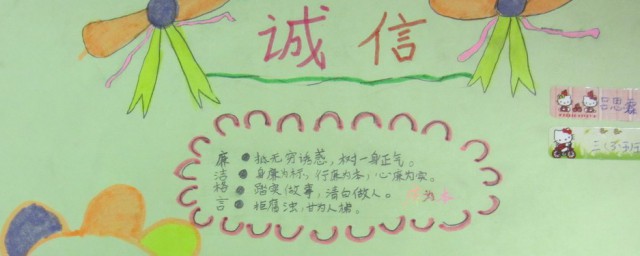 诚信
吕思霖
廉 ● 抵无穷诱惑，树一身正气。
洁 ● 身廉为标，行廉为本，心廉为实。
格 ● 踏实做事，清白做人。
为本
言 ● 拒腐浊，甘为人梯。